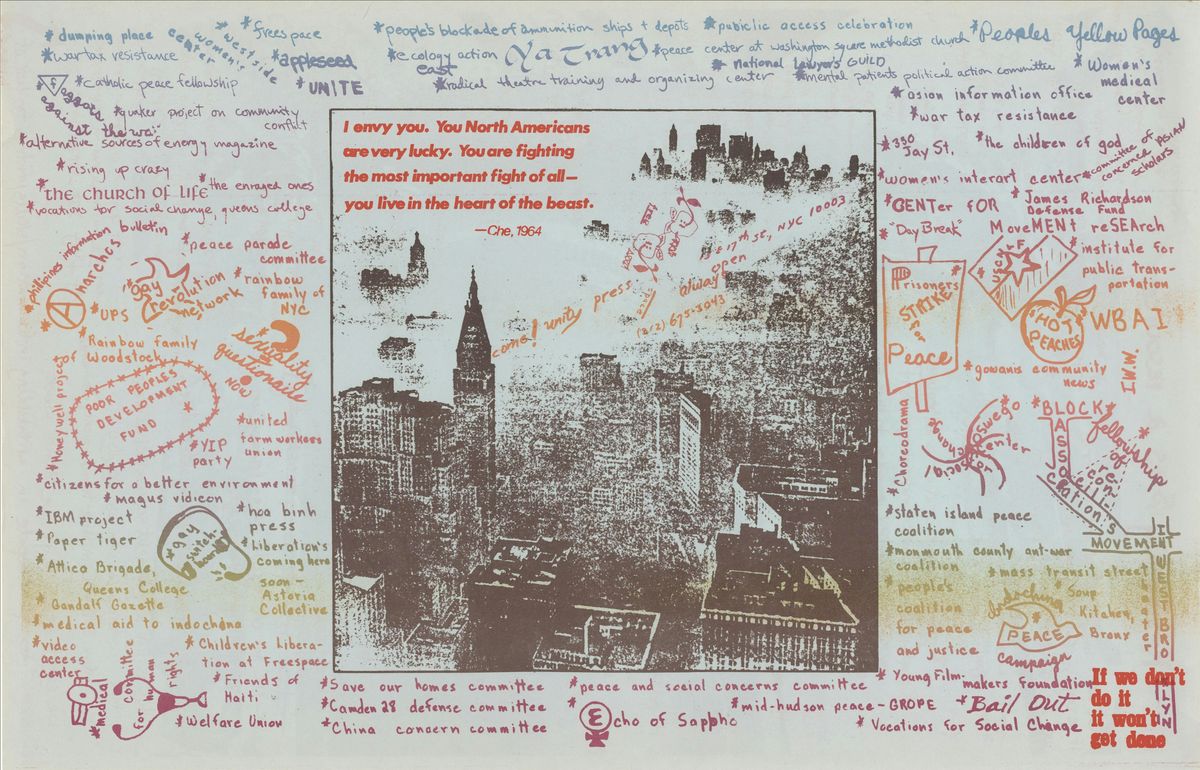 *dumping place
*westside women's center
*freespace
*people's blockade of ammunition ships + depots
*public access celebration
*Peoples Yellow Pages
*war tax resistance
*appleseed
*ecology action east
Ya Trang
*peace center at washington square methodist church
*National Lawyer's GUILD
*Women's medical center
*catholic peace fellowship
*UNITE
*radical theatre training and organizing center
*mental patients political action committee
against the war
*quaker project on community conflict
*asian information office
*war tax resistance
*alternative sources of energy magazine
*rising up crazy
*THE CHURCH OF LIFE
*the enraged ones
*vocations for social change, queens college
*330 Jay St.
*the children of god
*committee of concerned ASIAN scholars
*women's interart center
*CENTer FOR MoveMENt reSEArch
*James Richardson Defense Fund
"Day Break"
I envy you. You North Americans
are very lucky. You are fighting
the most important fight of all—
you live in the heart of the beast.
—Che, 1964
come! unity press
17th st, NYC 10003
always open
(212) 675-3043
*phillipines information bulletin
Anarchos
*peace parade
committee
*UPS
*gay revolution network
*rainbow
family of
NYC
*Rainbow family
of Woodstock
sexuality
questionaire
NOW
*Honeywell project
POOR PEOPLES
DEVELOPMENT
FUND
*YIP
party
*united
farm workers
union
*citizens for a better environment
magus vidicon
*IBM project
*Paper tiger
*gay switchboard
*hoa binh
press
*Liberation's
coming here
soon —
Astoria
Collective
*Attica Brigade,
Queens College
*Gandalf Gazette
*medical aid to indochina
*video
access
center
*medical committee for human rights
*Children's Libera-
tion at Freespace
*Friends of
Haiti
*Welfare Union
Prisoners
STRIKE
for
Peace
USCHF
*institute for
public trans-
portation
*HOT
PEACHES
WBAI
*gowanus community
news
I.W.W.
*Choreodrama
Oswego center for social change
*BLOCK
ASSOciation's
*fellowship
of
recon-
cilia-
*staten island peace
coalition
MOVEMENT
*monmouth county ant-war
coalition
*mass transit street theater
*people's
coalition
for peace
and justice
Indochina
PEACE
campaign
*Soup
Kitchen,
Bronx
IL VESTBROKLYN
*Save our homes committee
*Camden 28 defense committee
*China concern committee
*peace and social concerns committee
*Echo of Sappho
*mid-hudson peace - GROPE
*Young Film-
makers Foundation
*Bail Out
*Vocations for Social Change
If we don't
do it
it won't
get done